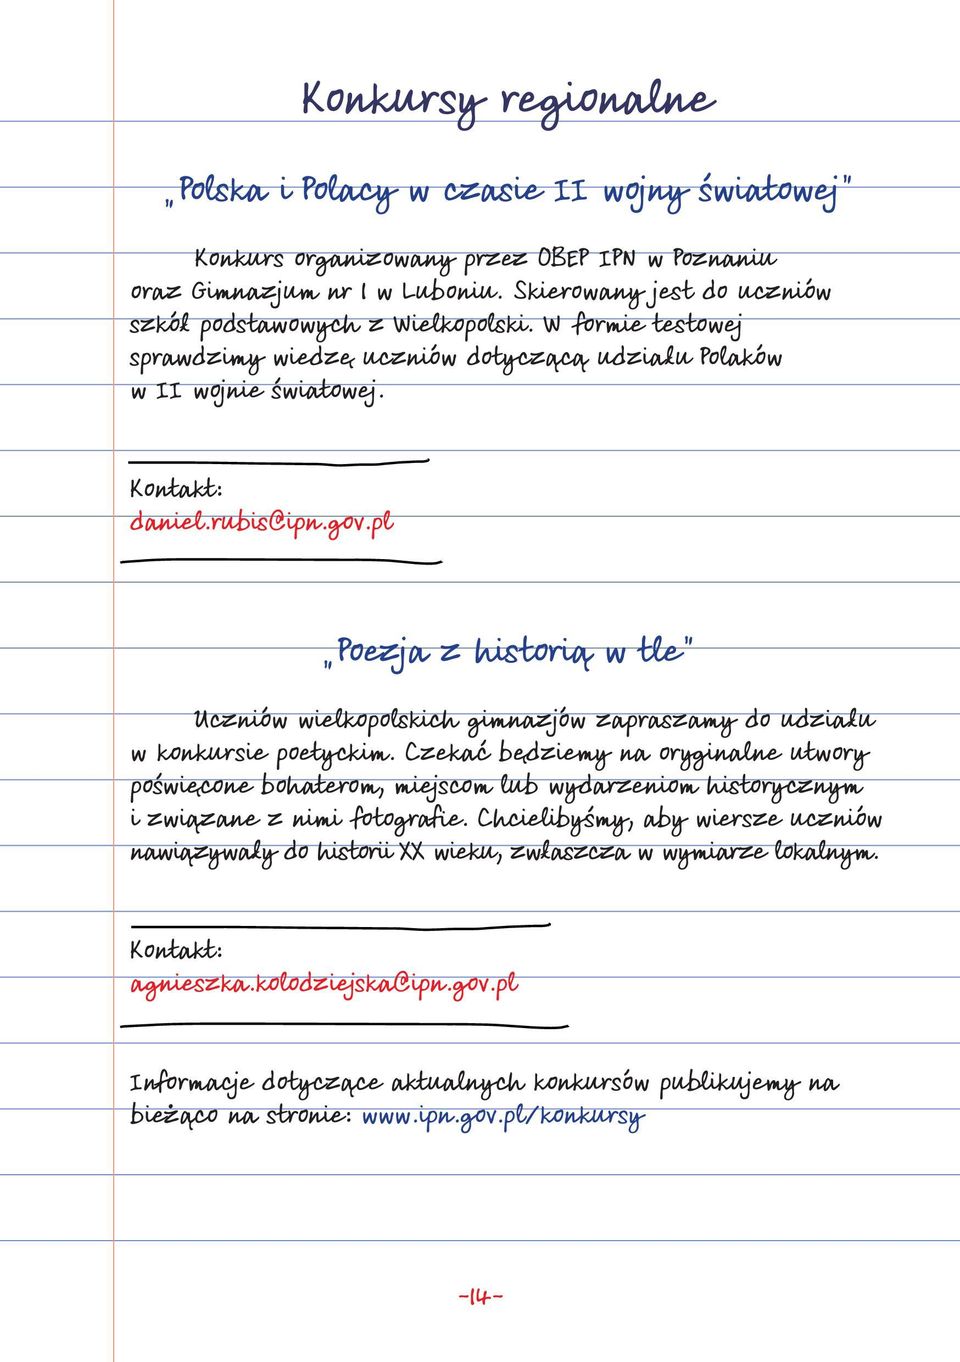 Konkursy regionalne
„Polska i Polacy w czasie II wojny światowej”
Konkurs organizowany przez OBEP IPN w Poznaniu
oraz Gimnazjum nr 1 w Luboniu. Skierowany jest do uczniów
szkół podstawowych z Wielkopolski. W formie testowej
sprawdzimy wiedzę uczniów dotyczącą udziału Polaków
w II wojnie światowej.
Kontakt:
daniel.rubis@ipn.gov.pl
„Poezja z historią w tle”
Uczniów wielkopolskich gimnazjów zapraszamy do udziału
w konkursie poetyckim. Czekać będziemy na oryginalne utwory
poświęcone bohaterom, miejscom lub wydarzeniom historycznym
i związane z nimi fotografie. Chcielibyśmy, aby wiersze uczniów
nawiązywały do historii XX wieku, zwłaszcza w wymiarze lokalnym.
Kontakt:
agnieszka.kolodziejska@ipn.gov.pl
Informacje dotyczące aktualnych konkursów publikujemy na
bieżąco na stronie: www.ipn.gov.pl/konkursy
-14-